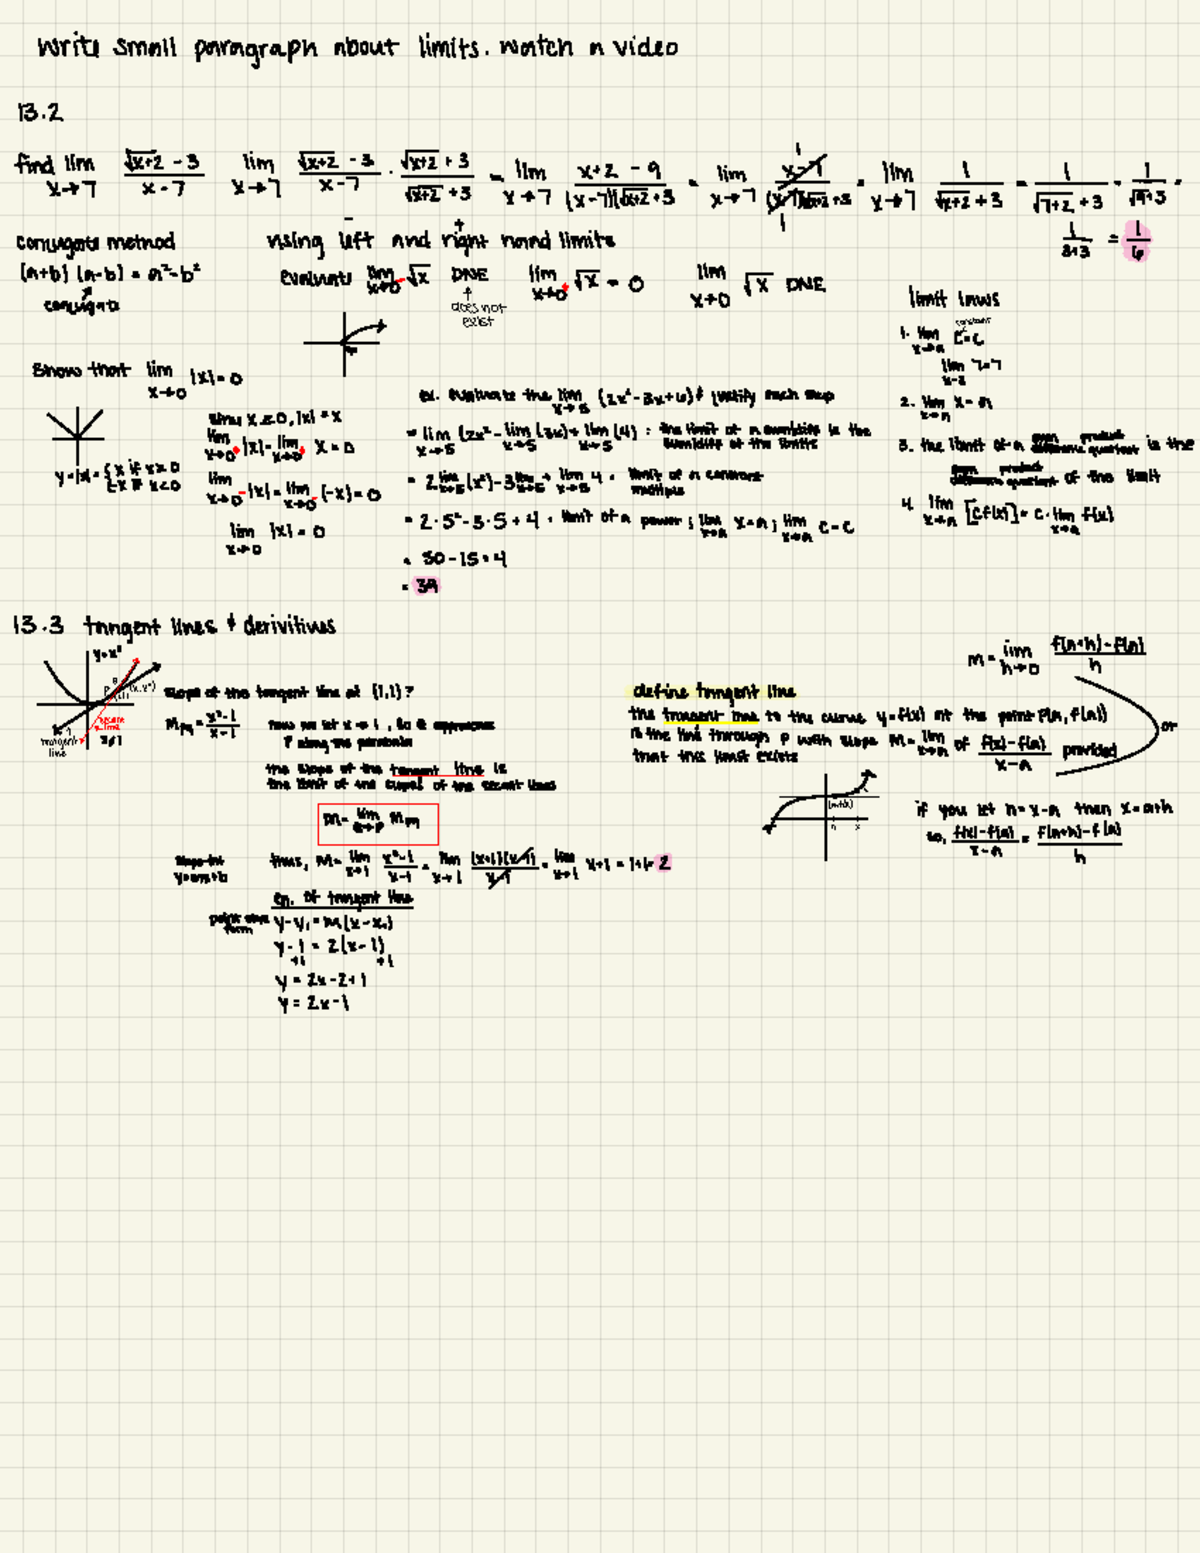 write small paragraph about limits. watch a video
13.2
find lim x→7 (√x+2 - 3)/(x-7)   lim x→7 (√x+2 - 3)/(x-7) · (√x+2 + 3)/(√x+2 + 3) = lim x→7 (x+2 - 9)/((x-7)(√x+2 + 3) = lim x→7 (x-7)/((x-7)(√x+2 + 3) = lim x→7 1/(√x+2 + 3) = 1/(√7+2 + 3) = 1/(√9+3) =
1/(3+3) = 1/6
conjugate method
(a+b) (a-b) = a²-b²
conjugate
using left and right hand limits
- +
evaluate lim x→0⁻ √x DNE   lim x→0⁺ √x = 0   lim x→0 √x DNE
↑
does not
exist
limit laws
1. lim x→a C=C
constant
lim x→2 7=7
2. lim x→a x = a
3. the limit of a sum product difference quotient is the
sum product difference quotient of the limit
4. lim x→a [cf(x)] = c·lim x→a f(x)
show that lim x→0 |x| = 0
y=|x|= {x if x≥0
-x if x<0
since x≥0, |x| = x
lim x→0⁺ |x| = lim x→0⁺ x = 0
lim x→0⁻ |x| = lim x→0⁻ (-x) = 0
lim x→0 |x| = 0
ex. evaluate the lim x→5 (2x²-3x+4) & justify each step
= lim x→5 (2x² - lim x→5 (3x) + lim x→5 (4) : the limit of a sum/diff is the
sum/diff of the limits
= 2 lim x→5 (x²) - 3 lim x→5 x + lim x→5 4 · limit of a constant
multiple
= 2·5² - 3·5 + 4 · limit of a power ; lim x→a x=a ; lim x→a c=c
= 50-15+4
= 39
13.3 tangent lines & derivitives
y=x²
P
(1,1)
(x,x²)
secant
line
tangent
line
x≠1
slope of the tangent line at (1,1)?
Mpq = (x²-1)/(x-1)
now we let x→1, so Q approaches
P along the parabola
the slope of the tangent line is
the limit of the slopes of the secant lines
m= lim Q→P Mpq
slope-int
y=mx+b
thus, M= lim x→1 (x²-1)/(x-1) = lim x→1 (x+1)(x-1)/(x-1) = lim x→1 x+1 = 1+1= 2
eq. of tangent line
point slope
form
y-y₁ = m(x-x₁)
y-1 = 2(x-1)
+1 +1
y = 2x-2+1
y = 2x-1
m = lim h→0 (f(a+h)-f(a))/h
define tangent line
the tangent line to the curve y=f(x) at the point P(a, f(a))
is the line through P with slope M= lim x→a of (f(x)-f(a))/(x-a) provided
that this limit exists
or
a x
if you let h=x-a then x=a+h
so, (f(x)-f(a))/(x-a) = (f(a+h)-f(a))/h